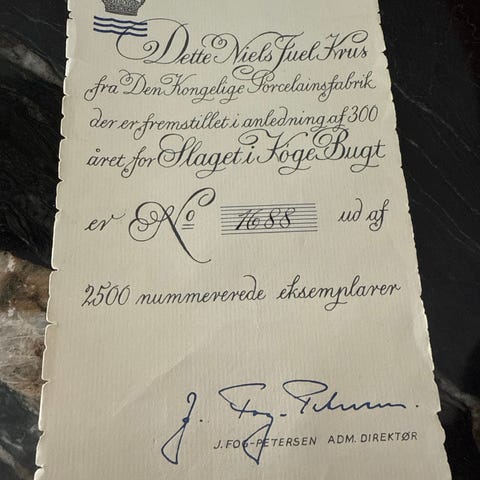 Dette Niels Juel Krus
fra Den Kongelige Porcelainsfabrik
der er fremstillet i anledning af 300
året for Slaget i Køge Bugt
er No 1688 ud af
2500 nummererede eksemplarer
J. Fog-Petersen.
J. FOG-PETERSEN ADM. DIREKTØR